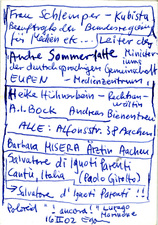 Frau Schlemper - Kubista
Beauftragte der Bundesregierung
für Medien etc... Leiter
Andre Sommerlatte Ministerium
der deutschsprachigen Gemeinschaft
EUPEN - Medienzentrum
Heike Hühnerbein - Rechtsanwältin
A.L. Bock Andreas Bienentreu
ALLE - Alfonsstr. 3 Aachen
Barbara MISERA Ärztin Aachen
Salvatore di Iguoti Parenti
Cantù, Italia (Paolo Giretto)
→ Salvatore d'Iguoti Parenti !!
Polaroid " ancora! " Lurago
Marinone
16 II 02